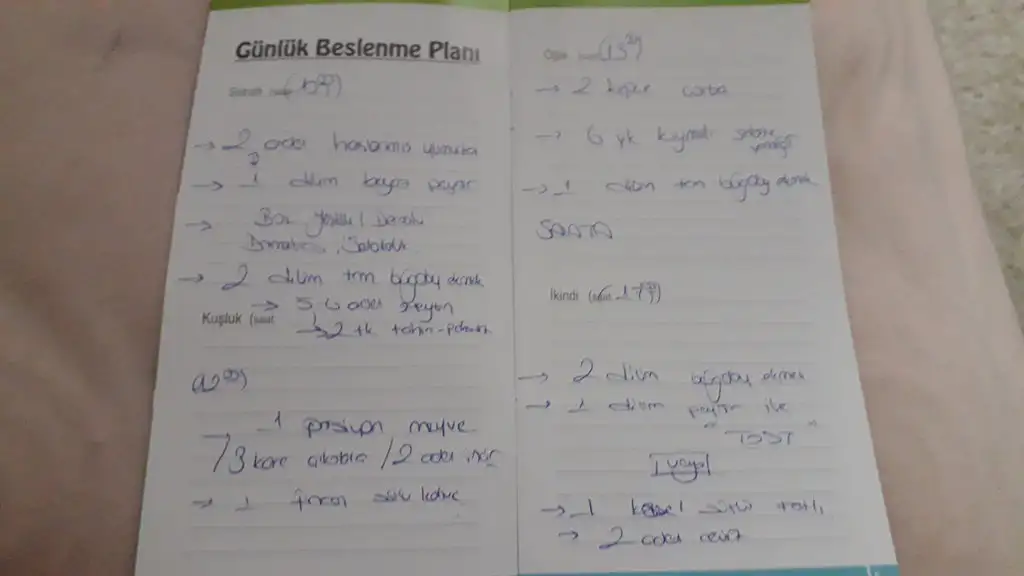 Günlük Beslenme Planı
Sabah (saat
→ 2 adet haşlanmış yumurta
→ 1 dilim beyaz peynir
→ Bol yeşillik
Domates, Salatalık
→ 2 dilim tam buğday ekmek
→ 5-6 adet zeytin
Kuşluk (saat
→ 2 tk tahin-pekmez
→ 1 porsiyon meyve
/ 3 kare çikolata / 2 adet incir
→ 1 fincan sütlü kahve
Öğle (saat
→ 2 kepçe çorba
→ 6 yk kıymalı sebze
yemeği
→ 1 dilim tam buğday ekmek
SALATA
İkindi (saat
→ 2 dilim buğday ekmek
→ 1 dilim peynir ile
"TOST"
veya
→ 1 kase sütlü tatlı
→ 2 adet ceviz